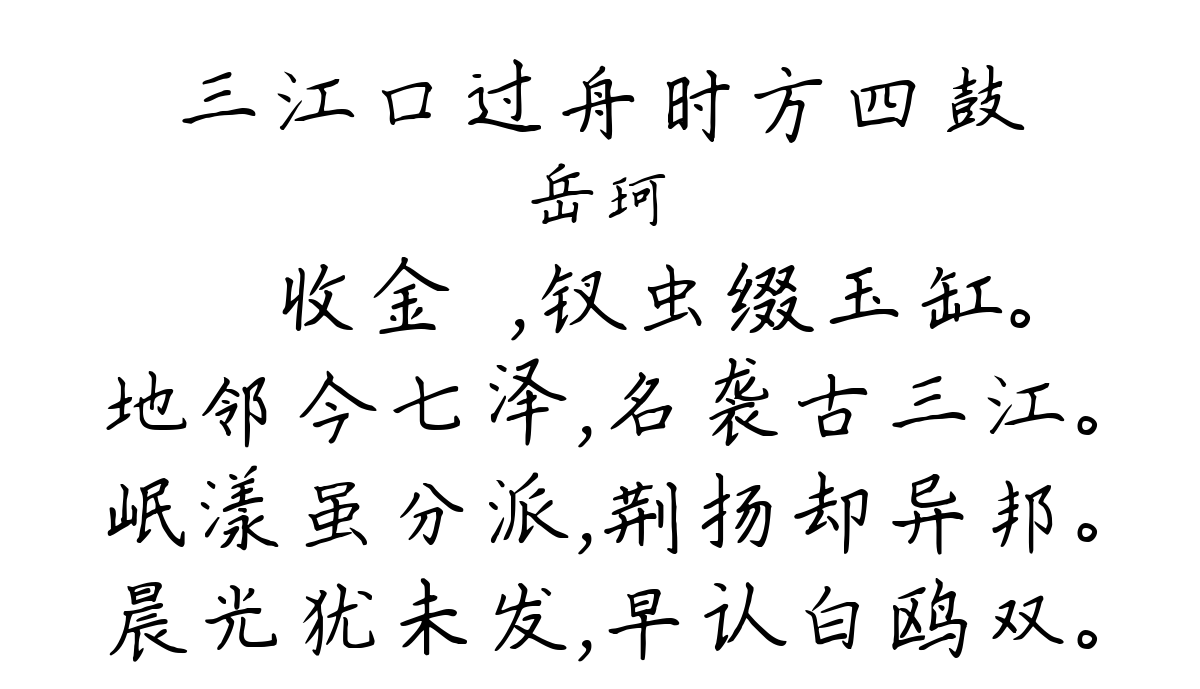 三江口过舟时方四鼓
岳珂
收金 ,钗虫缀玉缸。
地邻今七泽,名袭古三江。
岷漾虽分派,荆扬却异邦。
晨光犹未发,早认白鸥双。